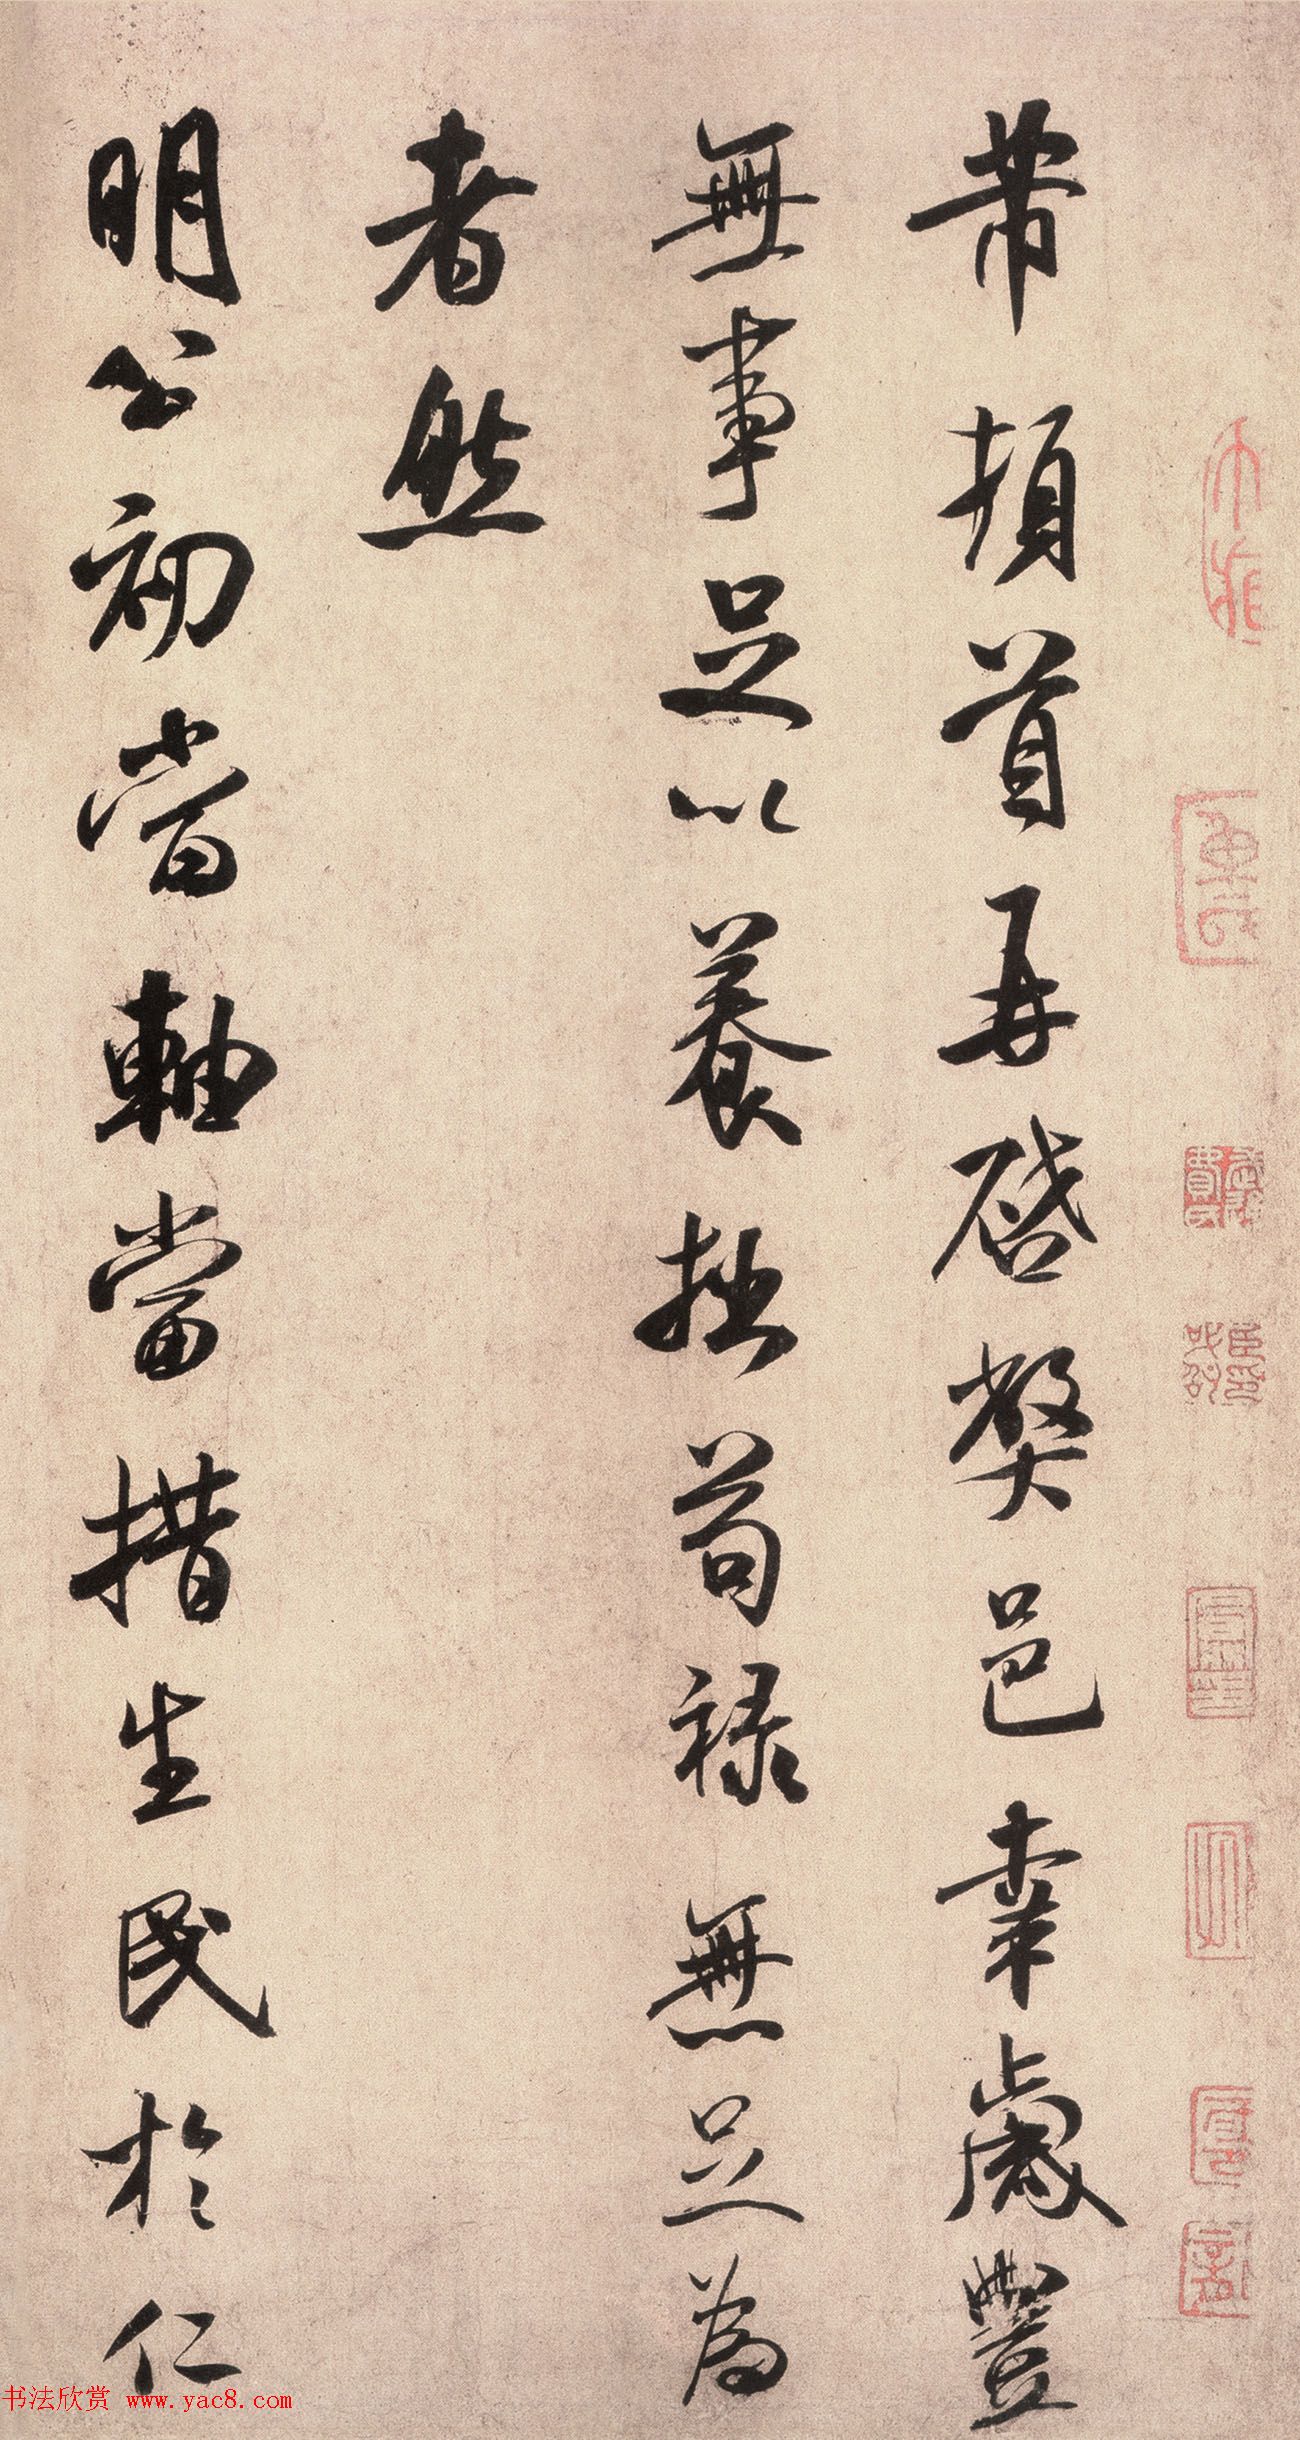 芾頓首再啓弊邑幸歲豐
無事足以養拙苟祿無足為
者然
明公初當軸當措生民於仁
书法欣赏 www.yac8.com